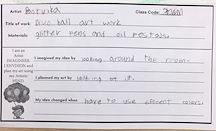 Artist Baruika Class Code:
Title of work: Disco ball art work
Materials: glitter pens and oil pastais
I am an
Artist
IMAGINEER.
I ENVISION and
plan my art using
my Artistic
MIND.
I imagined my idea by looking around the room.
I planned my art by looking at it.
My idea changed when have to use different colers.